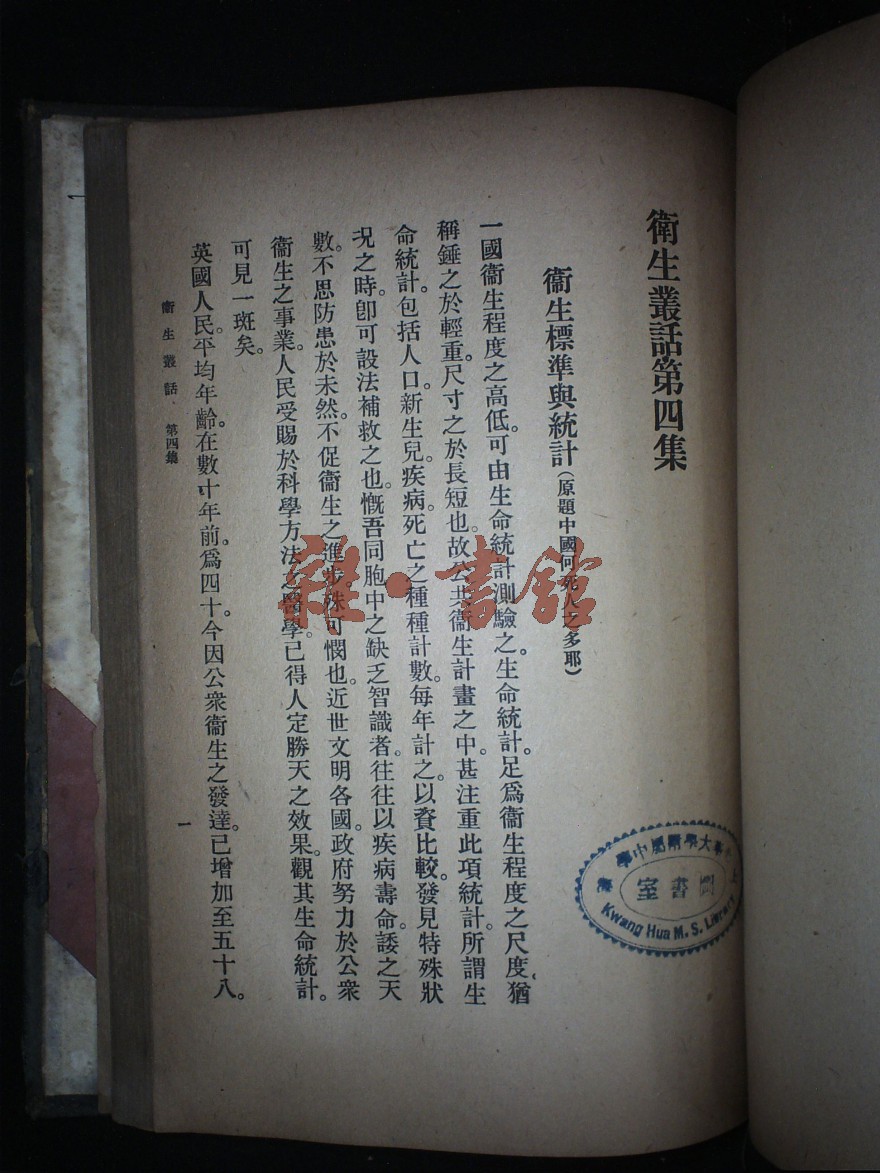 衛生叢話第四集
衞生標準與統計(原題中國何死人之多耶)
一國衞生程度之高低。可由生命統計測驗之。生命統計。足爲衞生程度之尺度。猶
稱錘之於輕重。尺寸之於長短也。故公共衞生計畫之中。甚注重此項統計。所謂生
命統計。包括人口。新生兒。疾病。死亡之種種計數。每年計之。以資比較。發見特殊狀
况之時。卽可設法補救之也。慨吾同胞中之缺乏智識者。往往以疾病壽命。諉之天
數。不思防患於未然。不促衞生之進步。殊可憫也。近世文明各國。政府努力於公衆
衞生之事業。人民受賜於科學方法之醫學。已得人定勝天之效果。觀其生命統計。
可見一斑矣。
英國人民。平均年齡。在數十年前。爲四十。今因公衆衞生之發達。已增加至五十八。
衞生叢話 第四集
一
雜·書館
大學附屬中學
圖書室
Kwang Hua M. S. Library